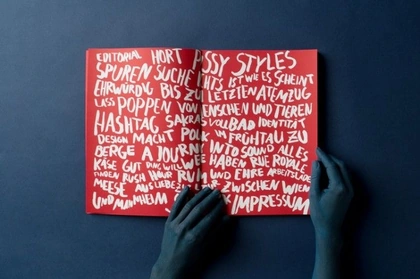 EDITORIAL HORT PUSSY STYLES
SPUREN SUCHE NICHTS IST WIE ES SCHEINT
EHRWÜRDIG BIS ZUM LETZTEN ATEMZUG
LASS POPPEN VON MENSCHEN UND TIEREN
HASHTAG SAKRAL VOLLBAD IDENTITÄT
DESIGN MACHT POLITIK IN FRÜHTAU ZU
BERGE A JOURNEY INTO SOUND ALLES
KÄSE GUT DING WILL WEILE HABEN RUE ROYALE
FINDEN RUSH HOUR RUHM UND EHRE ARBEITSLOSE
MEESE AUS LIEBE ZU ZWISCHEN WIEN
UND MANNHEIM IMPRESSUM